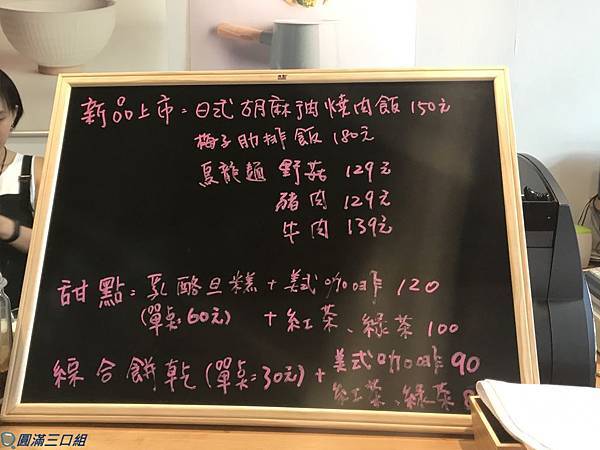 新品上市:日式胡麻油燒肉飯150元
梅子肋排飯180元
烏龍麵 野菇 129元
豬肉 129元
牛肉 139元
甜點:乳酪旦糕+美式咖啡120
(單点:60元) +紅茶、綠茶100
綜合餅乾(單点:30元)+美式咖啡90
紅茶、綠茶
圓滿三口組